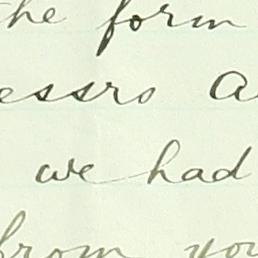 the form
essrs A
we had
from you